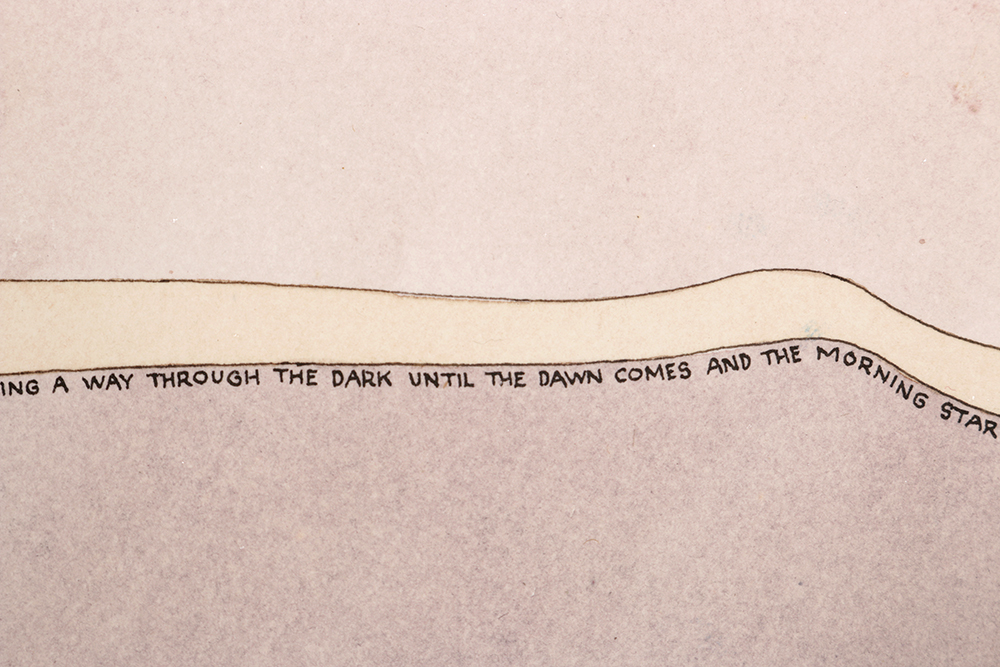 ING A WAY THROUGH THE DARK UNTIL THE DAWN COMES AND THE MORNING STAR